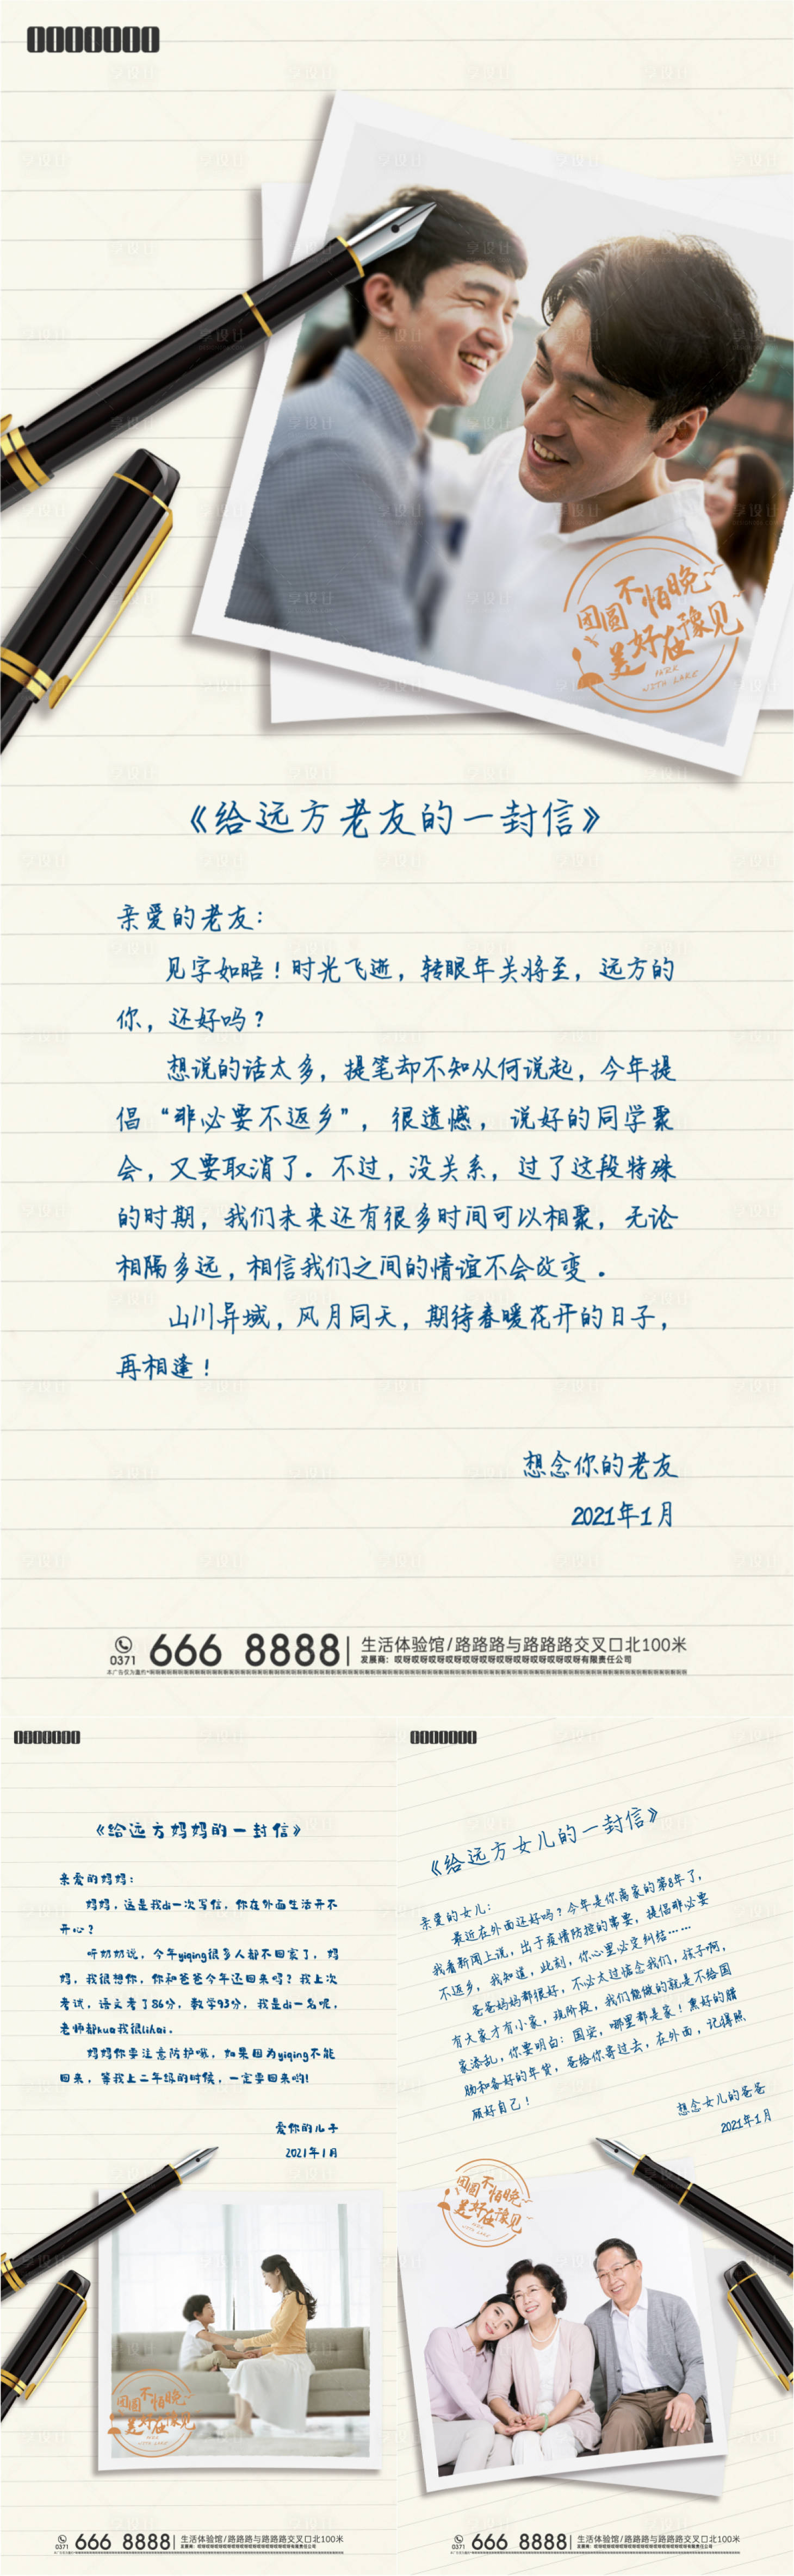 0000000
团圆不怕晚
美好在豫见
PARK
WITH LAKE
《给远方老友的一封信》
亲爱的老友：
见字如晤！时光飞逝，转眼年关将至，远方的
你，还好吗？
想说的话太多，提笔却不知从何说起，今年提
倡“非必要不返乡”，很遗憾，说好的同学聚
会，又要取消了。不过，没关系，过了这段特殊
的时期，我们未来还有很多时间可以相聚，无论
相隔多远，相信我们之间的情谊不会改变。
山川异域，风月同天，期待春暖花开的日子，
再相逢！
想念你的老友
2021年1月
0371
666 8888
生活体验馆/路路路与路路路交叉口北100米
0000000
《给远方妈妈的一封信》
亲爱的妈妈：
妈妈，这是我di一次写信，你在外面生活开不
开心？
听奶奶说，今年yiqing很多人都不回家了，妈
妈，我很想你，你和爸爸今年还回来吗？我上次
考试，语文考了86分，数学93分，我是di一名呢，
老师都kua我很lihai。
妈妈你要注意防护哦，如果因为yiqing不能
回来，等我上二年级的时候，一定要回来哟！
爱你的儿子
2021年1月
团圆不怕晚
美好在豫见
0371
666 8888
生活体验馆/路路路与路路路交叉口北100米
0000000
《给远方女儿的一封信》
亲爱的女儿：
最近在外面还好吗？今年是你离家的第8年了，
我看新闻上说，出于疫情防控的需要，提倡非必要
不返乡，我知道，此刻，你心里必定纠结……
爸爸妈妈都很好，不必太过惦念我们，孩子啊，
有大家才有小家，现阶段，我们能做的就是不给国
家添乱，你要明白：国安，哪里都是家！熏好的腊
肠和备好的年货，爸给你寄过去，在外面，记得照
顾好自己！
想念女儿的爸爸
2021年1月
团圆不怕晚
美好在豫见
0371
666 8888
生活体验馆/路路路与路路路交叉口北100米